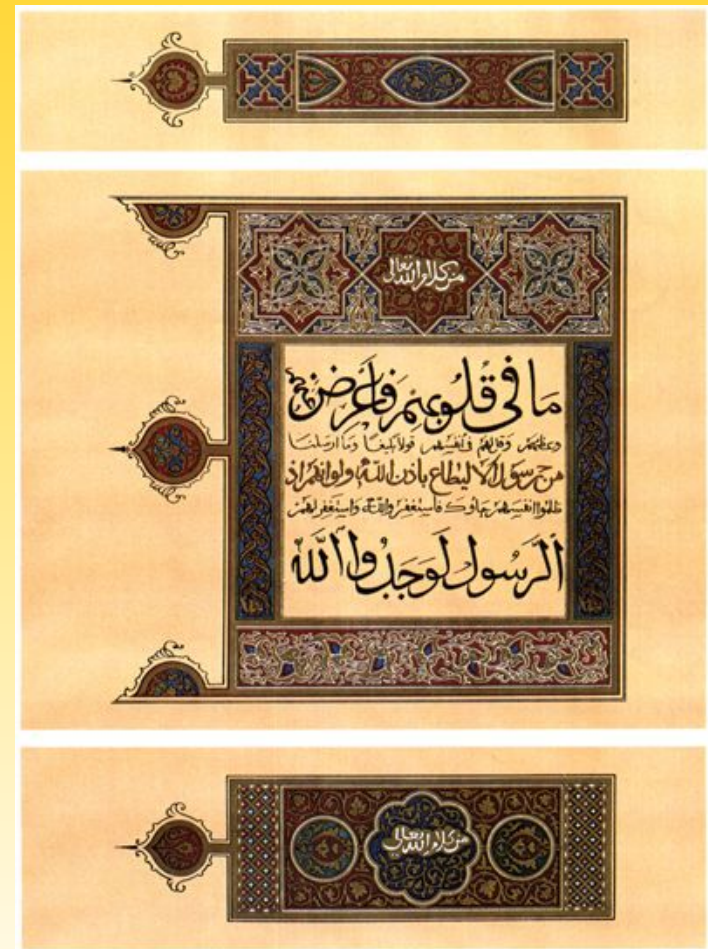 من كلام الله تعالى
مَا فى قُلُوبِهِمْ فَأَعْرِضْ عنهم
وعظهم وقل لهم فى انفسهم قولا بليغا وما ارسلنا
من رسول الا ليطاع باذن الله ولو انهم اذ
ظلموا انفسهم جاؤك فاستغفروا الله واستغفر لهم
الرَّسُول لَوَجَدُوا اللَّه
من كلام الله تعالى